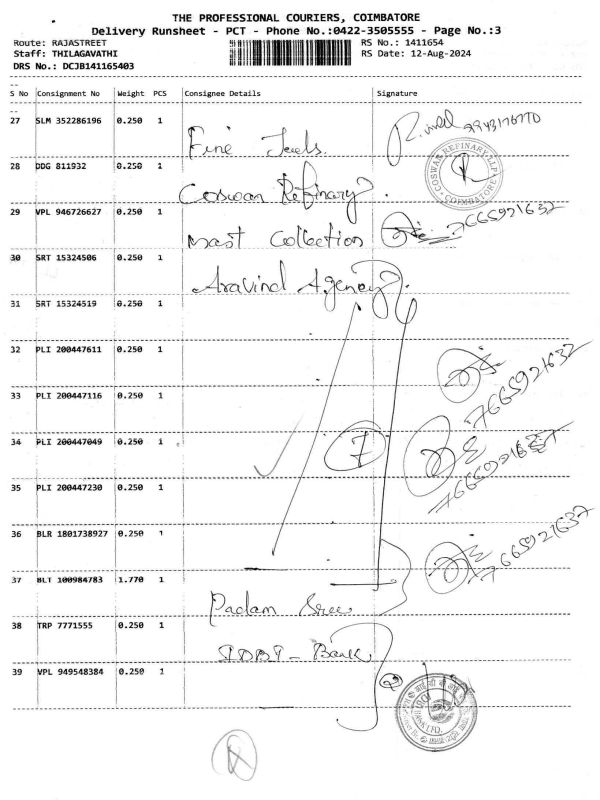 THE PROFESSIONAL COURIERS, COIMBATORE
Delivery Runsheet - PCT - Phone No.:0422-3505555 - Page No.:3
Route: RAJASTREET RS No.: 1411654
Staff: THILAGAVATHI RS Date: 12-Aug-2024
DRS No.: DCJB141165403
S No Consignment No Weight PCS Consignee Details Signature
27 SLM 352286196 0.250 1 Fine Jewels. 2943176770
28 DDG 811932 0.250 1 Coswan Refinary
COSWAN REFINARY LLP COIMBATORE
29 VPL 946726627 0.250 1 Mast Collection 7665921632
30 SRT 15324506 0.250 1 Aravind Agency
31 SRT 15324519 0.250 1
32 PLI 200447611 0.250 1
7665921632
33 PLI 200447116 0.250 1
34 PLI 200447049 0.250 1 7
35 PLI 200447230 0.250 1
36 BLR 1801738927 0.250 1
7665921632
37 BLT 100984783 1.770 1 Padam Sree
38 TRP 7771555 0.250 1 IDBI - Bank
39 VPL 949548384 0.250 1 2
BANK LTD.